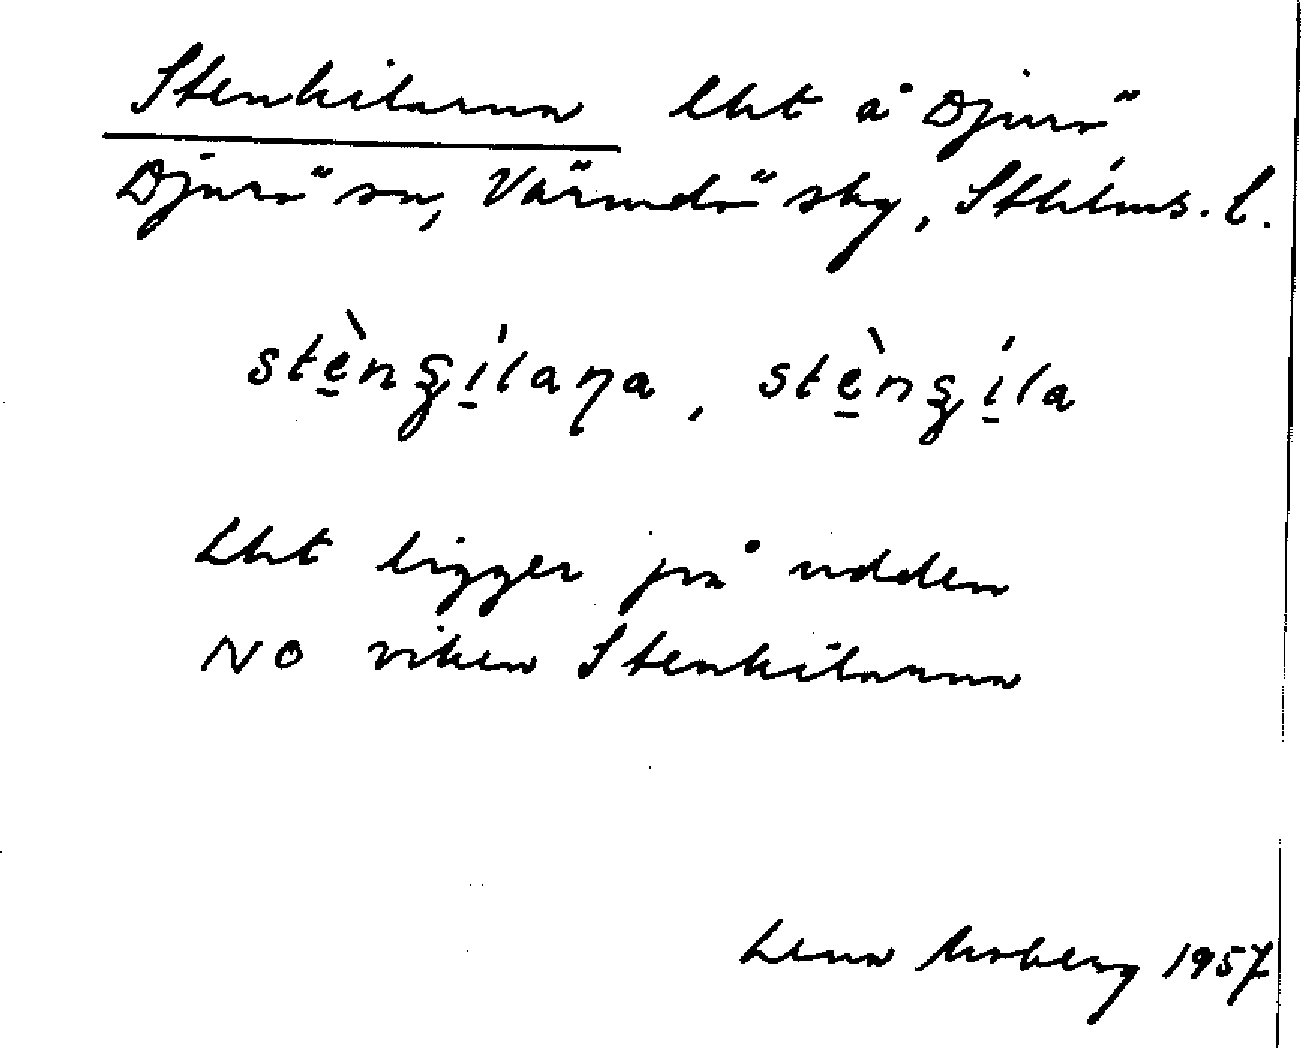 Stenkilarna lht å Djurö
Djurö sn, Värmdö skg, Sthlms. l.
stè̱nʂí̱laɳa, stè̱nʂí̱la
Lht ligger på udden
NO viken Stenkilarna
Lena Moberg 1957